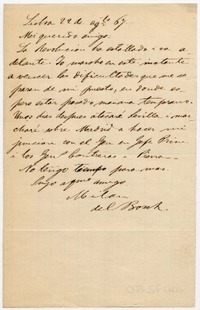 Lisboa 22 de agto 67.
Mi querido amigo.
La Revolucion ha estallado. va a
delante. Yo marcho en este instante
a vencer las dificultades que me se
paran de mi puesto, en donde es
pero estar pasado mañana temprano.
Unos dias despues atacaré Sevilla, mar
charé sobre Madrid a hacer mi
juncion con el Gen en Jefe Prim
i los Genls Contreras i Pierra
No tengo tiempo para mas
Suyo amigo
Milan
del Bosch.